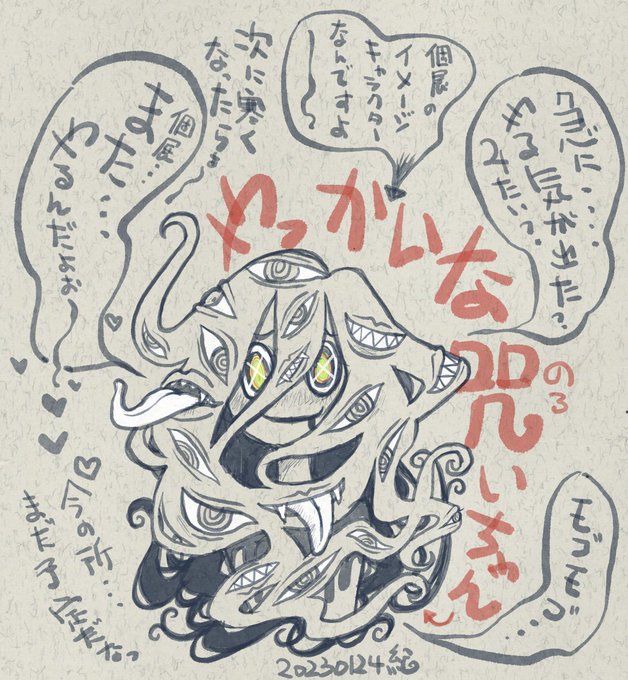 個展の
イメージ
キャラクター
なんですよ
〜
次に寒く
なったらぁ
〜
個展…
また…
やるんだよぉ
〜
急に……
やる気が出た?
みたいっ?
やっかいな
呪いぶん
のろ
モゴモゴ
…
今の所…
まだ予定だなっ
20230124絵